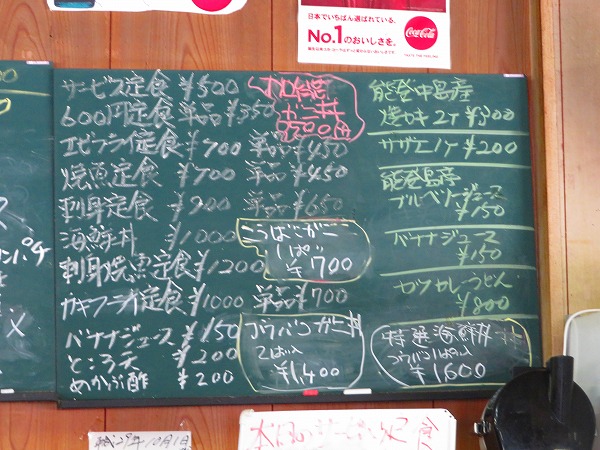 日本でいちばん選ばれている。
No.1のおいしさを。
Coca-Cola
サービス定食 ¥500
600円定食 単品 ¥350
エビフライ定食 ¥700 単品 ¥450
焼魚定食 ¥700 単品 ¥450
刺身定食 ¥900 単品 ¥650
海鮮丼 ¥1000
刺身焼魚定食 ¥1200
カキフライ定食 ¥1000 単品 ¥700
バナナジュース ¥150
ところ天 ¥200
めかぶ酢 ¥200
カニ丼
2500円
こうばこがに
1ぱい
¥700
コウバコガニ丼
2はい入
¥1,400
能登中島産
焼カキ 2ケ ¥300
サザエ 1ケ ¥200
能登島産
ブルーベリージュース
¥150
バナナジュース
¥150
カツカレーうどん
¥800
特選海鮮丼
コウバコ1ぱい入
¥1,600
ンパチ
メ
10月1日
本日の